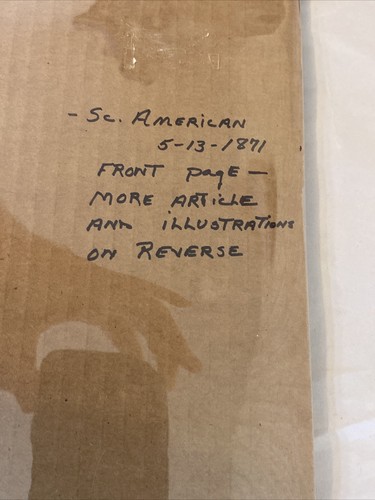 - Sc. American
5-13-1871
Front page -
More article
and illustrations
on Reverse